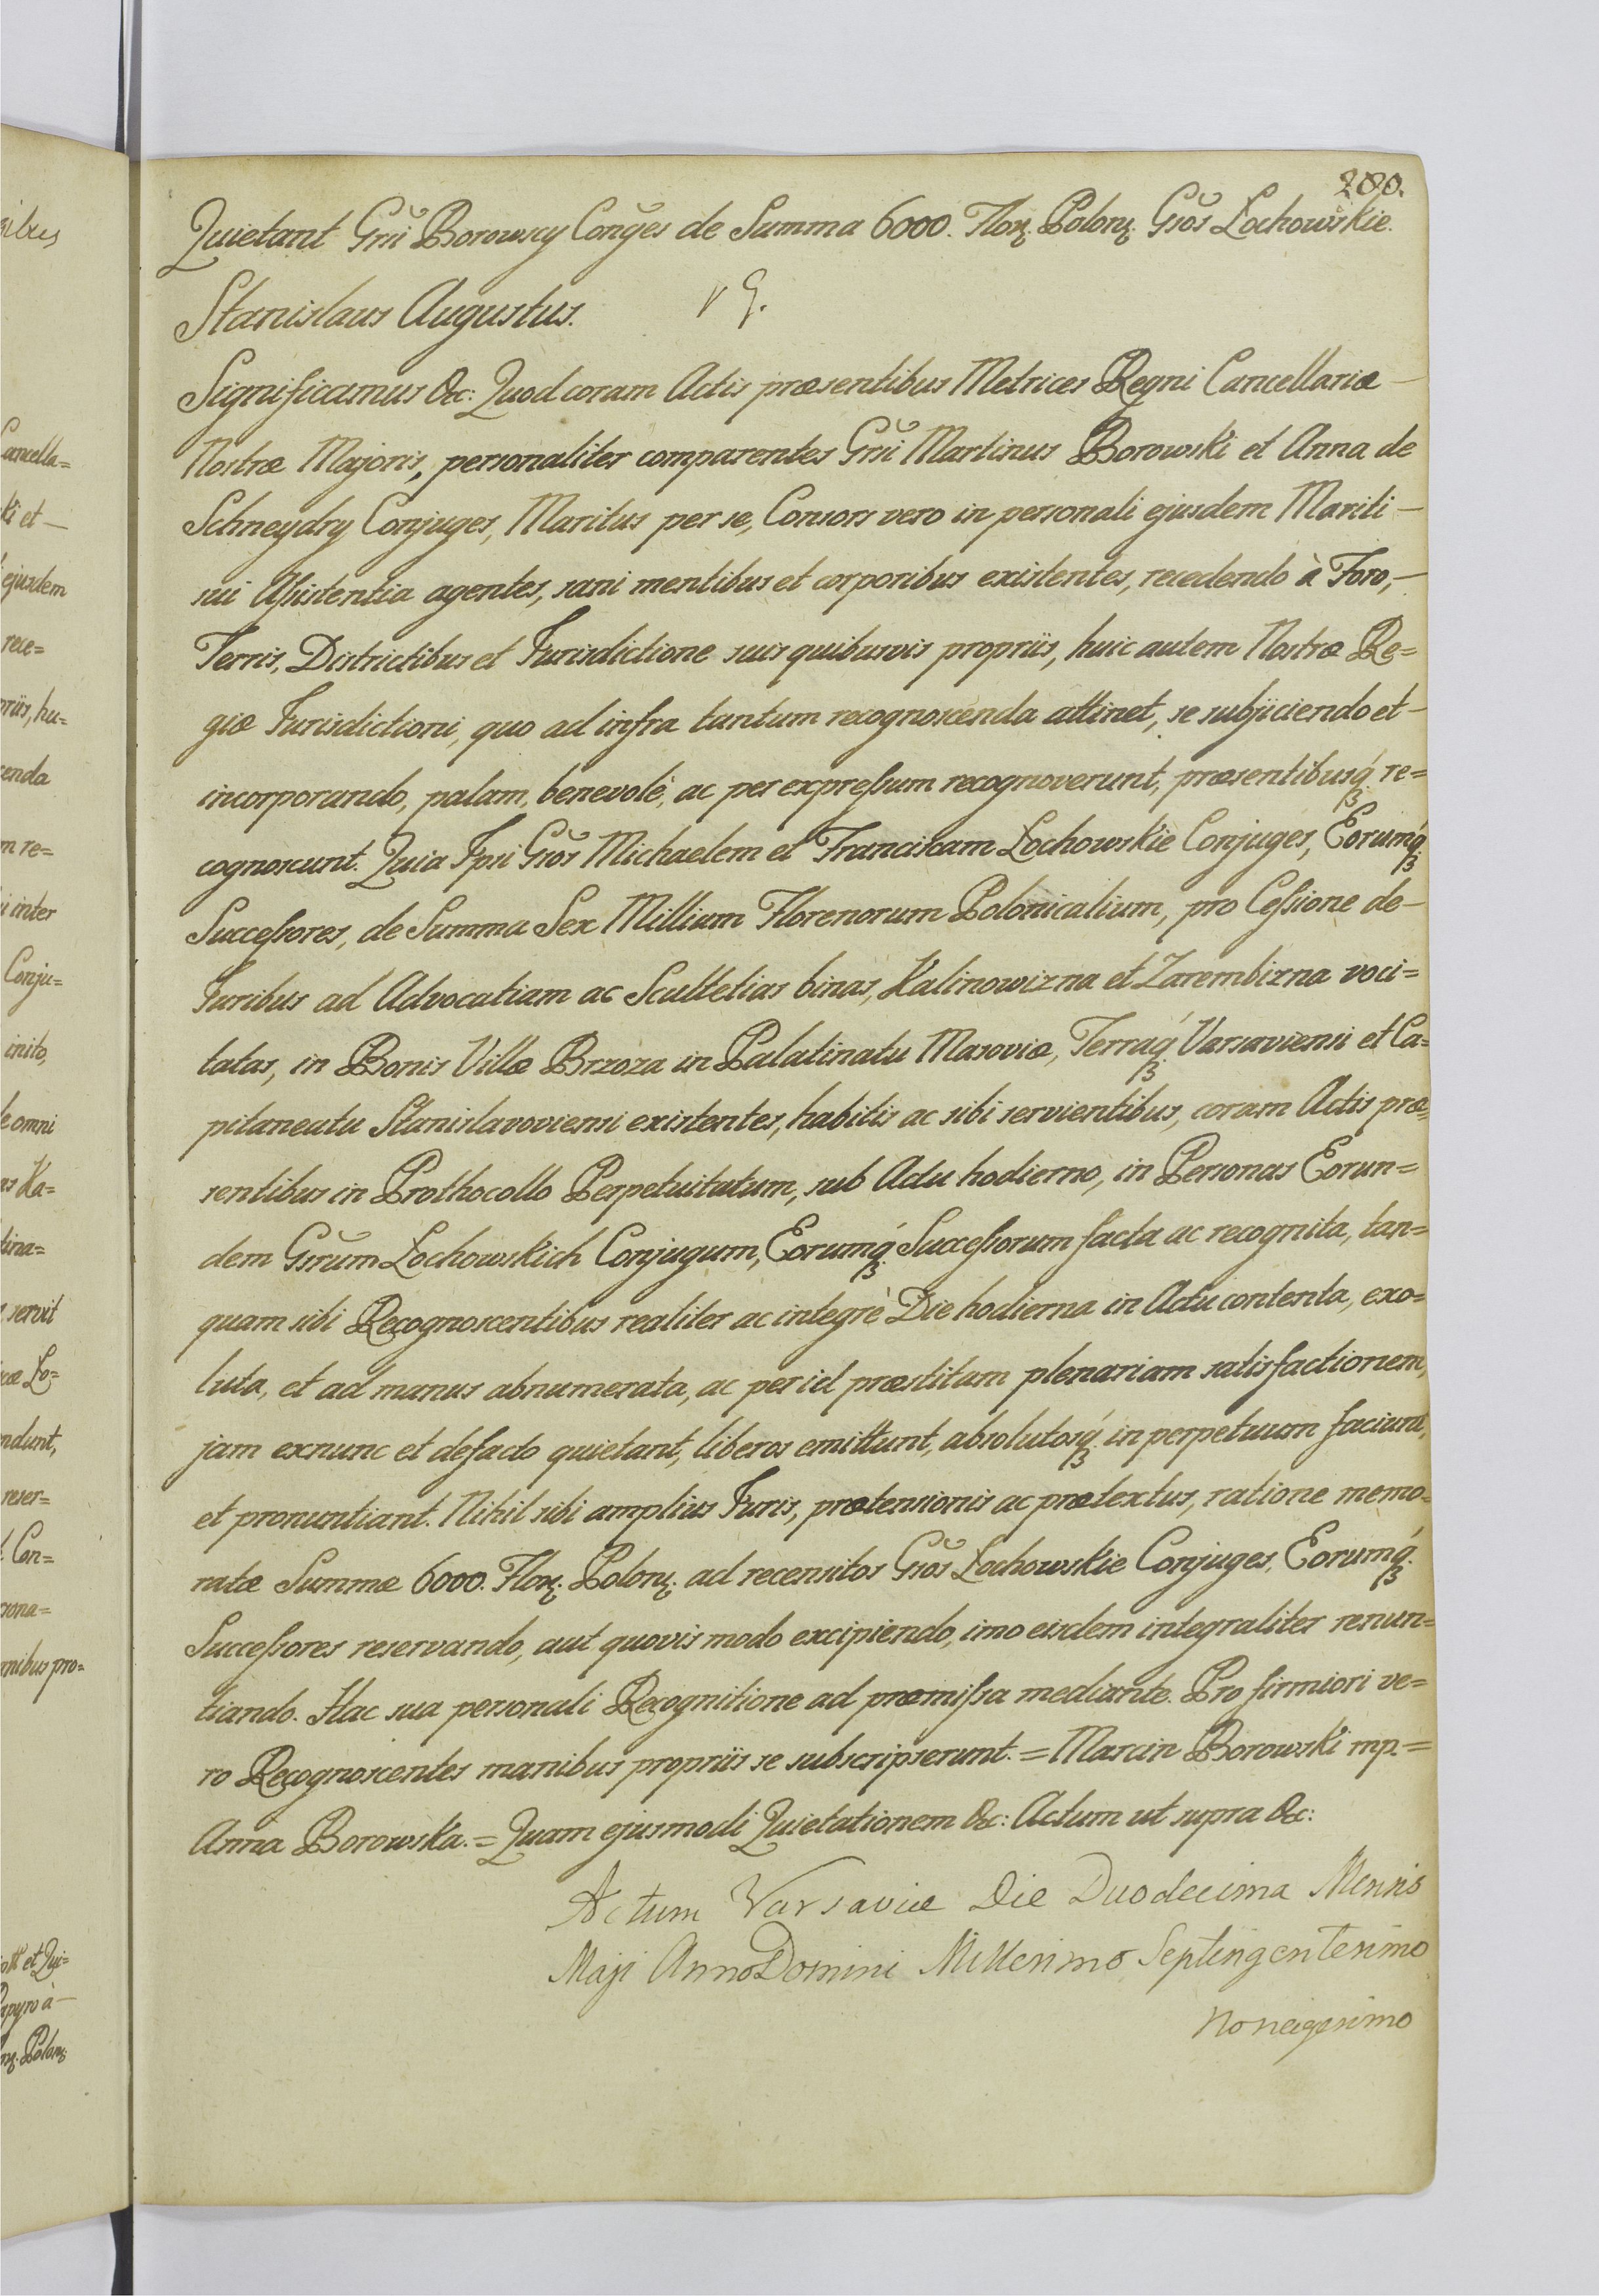 280.
Quietant Grsi Borowscy Conges de Summa 6000. Flor. Polon. Gsos Lochowskie.
Stanislaus Augustus.
Significamus &c: Quod coram Actis præsentibus Metrices Regni Cancellariæ –
Nostræ Majoris, personaliter comparentes Grsi Martinus Borowski et Anna de
Schneydry Conjuges, Maritus per se, Consors vero in personali ejusdem Mariti –
sui Assistentia agentes, sani mentibus et corporibus existentes, recedendo à Foro, –
Terris, Districtibus et Jurisdictione suis quibusvis propriis, huic autem Nostræ Re=
giæ Jurisdictioni, quo ad infra tantum recognoscenda attinet, se subjiciendo et –
incorporando, palam, benevolè, ac per expressum recognoverunt, præsentibusq́ꝫ re=
cognoscunt. Quia Ipsi Gsos Michaelem et Franciscam Lochowskie Conjuges, Eorumq́ꝫ
Successores, de Summa Sex Millium Florenorum Polonicalium, pro Cessione de –
Juribus ad Advocatiam ac Scultetias binas, Kalinowizna et Zarembizna voci=
tatas, in Bonis Villæ Brzoza in Palatinatu Masoviæ, Terráq́ꝫ Varsaviensi et Ca=
pitaneatu Stanislavoviensi existentes, habitis ac sibi servientibus, coram Actis præ=
sentibus in Prothocollo Perpetuitatum, sub Actu hodierno, in Personas Eorun=
dem Gsrum Lochowskich Conjugum, Eorumq́ꝫ Successorum facta ac recognita, tan=
quam sibi Recognoscentibus realiter ac integrè Die hodierna in Actu contenta, exo=
luta, et ad manus abnumerata, ac per id præstitam plenariam satisfactionem,
jam exnunc et defacto quietant, liberos emittunt, absolutosq́ꝫ in perpetuum faciunt,
et pronuntiant. Nihil sibi amplius Juris, prætensionis ac prætextus, ratione memo=
ratæ Summæ 6000. Flor. Polon. ad recensitos Gsos Lochowskie Conjuges, Eorumq́ꝫ
Successores reservando, aut quovis modo excipiendo, imo eisdem integraliter renun=
tiando. Hac sua personali Recognitione ad præmissa mediante. Pro firmiori ve=
ro Recognoscentes manibus propriis se subscripserunt. = Marcin Borowski mp. =
Anna Borowska. = Quam ejusmodi Quietationem &c: Actum ut supra &c:
Actum Varsaviæ Die Duodecima Mensis
Maji Anno Domini Millesimo Septingentesimo
Nonagesimo